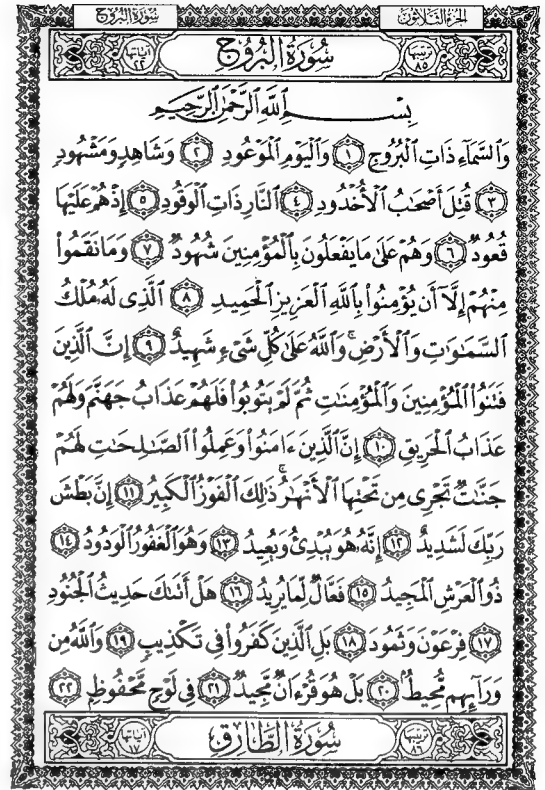 الجزء الثلاثون
سورة البروج
ترتيبها ٨٥
سُورَةُ الْبُرُوجِ
آياتها ٢٢
بِسْمِ اللَّهِ الرَّحْمَٰنِ الرَّحِيمِ
وَالسَّمَاءِ ذَاتِ الْبُرُوجِ ١ وَالْيَوْمِ الْمَوْعُودِ ٢ وَشَاهِدٍ وَمَشْهُودٍ
٣ قُتِلَ أَصْحَٰبُ الْأُخْدُودِ ٤ النَّارِ ذَاتِ الْوَقُودِ ٥ إِذْ هُمْ عَلَيْهَا
قُعُودٌ ٦ وَهُمْ عَلَىٰ مَا يَفْعَلُونَ بِالْمُؤْمِنِينَ شُهُودٌ ٧ وَمَا نَقَمُوا
مِنْهُمْ إِلَّا أَن يُؤْمِنُوا بِاللَّهِ الْعَزِيزِ الْحَمِيدِ ٨ الَّذِى لَهُ مُلْكُ
السَّمَٰوَٰتِ وَالْأَرْضِ ۚ وَاللَّهُ عَلَىٰ كُلِّ شَىْءٍ شَهِيدٌ ٩ إِنَّ الَّذِينَ
فَتَنُوا الْمُؤْمِنِينَ وَالْمُؤْمِنَٰتِ ثُمَّ لَمْ يَتُوبُوا فَلَهُمْ عَذَابُ جَهَنَّمَ وَلَهُمْ
عَذَابُ الْحَرِيقِ ١٠ إِنَّ الَّذِينَ ءَامَنُوا وَعَمِلُوا الصَّٰلِحَٰتِ لَهُمْ
جَنَّٰتٌ تَجْرِى مِن تَحْتِهَا الْأَنْهَٰرُ ۚ ذَٰلِكَ الْفَوْزُ الْكَبِيرُ ١١ إِنَّ بَطْشَ
رَبِّكَ لَشَدِيدٌ ١٢ إِنَّهُ هُوَ يُبْدِئُ وَيُعِيدُ ١٣ وَهُوَ الْغَفُورُ الْوَدُودُ ١٤
ذُو الْعَرْشِ الْمَجِيدُ ١٥ فَعَّالٌ لِّمَا يُرِيدُ ١٦ هَلْ أَتَىٰكَ حَدِيثُ الْجُنُودِ
١٧ فِرْعَوْنَ وَثَمُودَ ١٨ بَلِ الَّذِينَ كَفَرُوا فِى تَكْذِيبٍ ١٩ وَاللَّهُ مِن
وَرَآئِهِم مُّحِيطٌ ٢٠ بَلْ هُوَ قُرْءَانٌ مَّجِيدٌ ٢١ فِى لَوْحٍ مَّحْفُوظٍ ٢٢
ترتيبها ٨٦
سُورَةُ الطَّارِقِ
آياتها ١٧